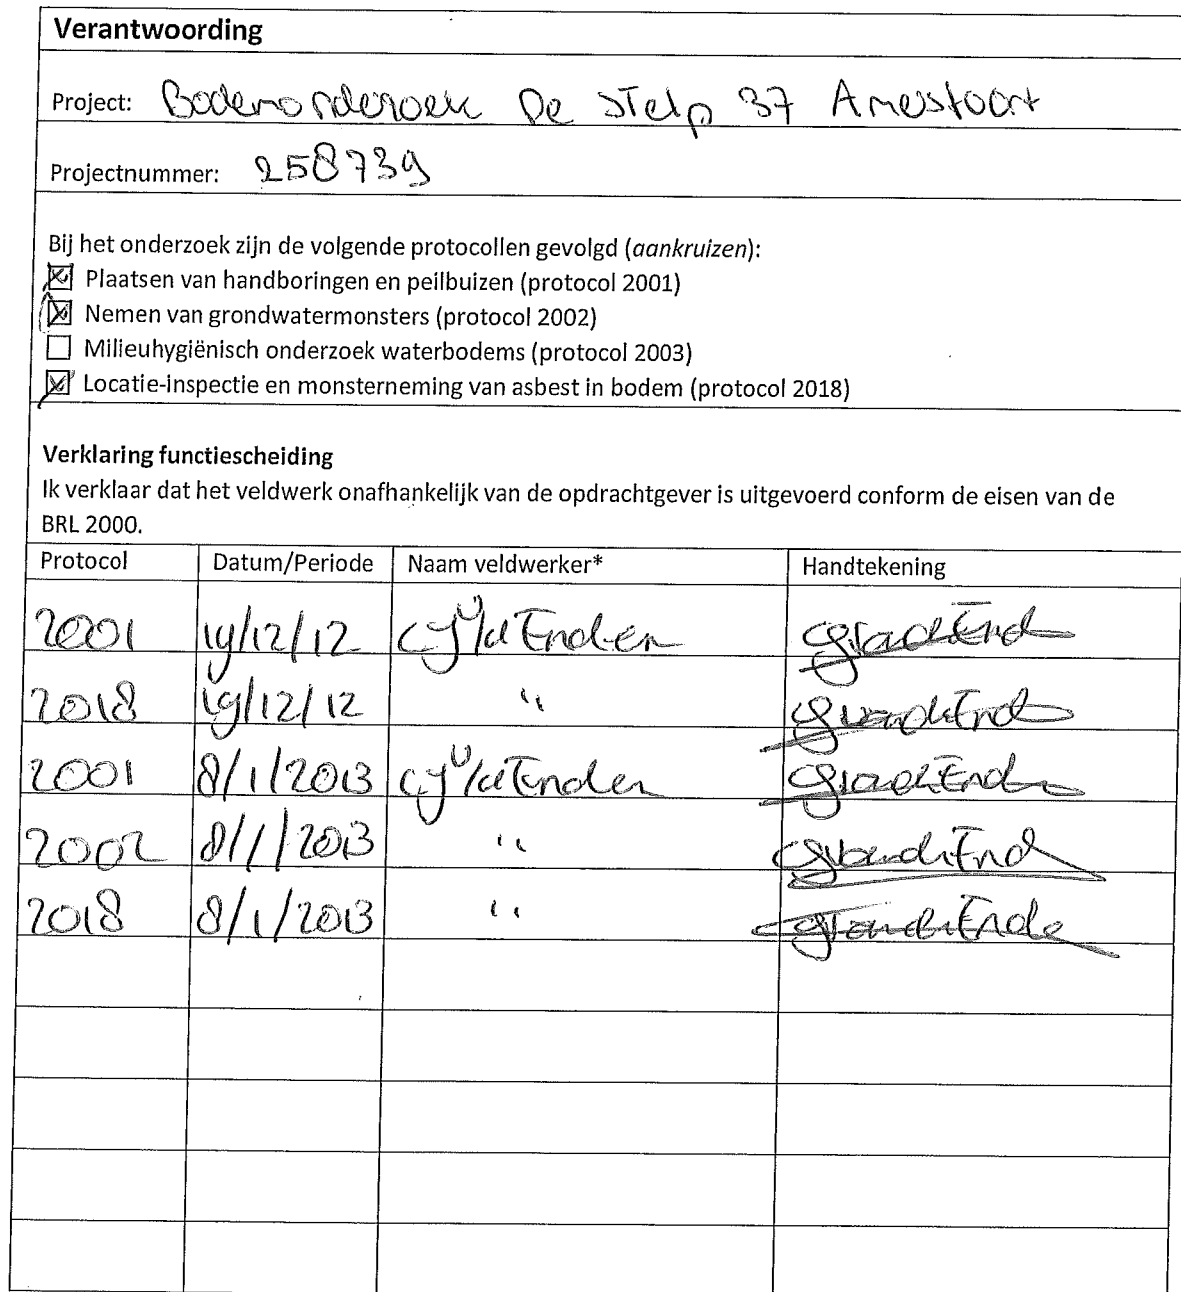 Verantwoording
Project: Bodemonderzoek De Stelp 37 Amersfoort
Projectnummer: 258739
Bij het onderzoek zijn de volgende protocollen gevolgd (aankruizen):
☒ Plaatsen van handboringen en peilbuizen (protocol 2001)
☒ Nemen van grondwatermonsters (protocol 2002)
☐ Milieuhygiënisch onderzoek waterbodems (protocol 2003)
☒ Locatie-inspectie en monsterneming van asbest in bodem (protocol 2018)
Verklaring functiescheiding
Ik verklaar dat het veldwerk onafhankelijk van de opdrachtgever is uitgevoerd conform de eisen van de
BRL 2000.
Protocol Datum/Periode Naam veldwerker* Handtekening
2001 19/12/12 CJ v/d Enden
2018 19/12/12 "
2001 8/1/2013 CJ v/d Enden
2002 8/1/2013 "
2018 8/1/2013 "